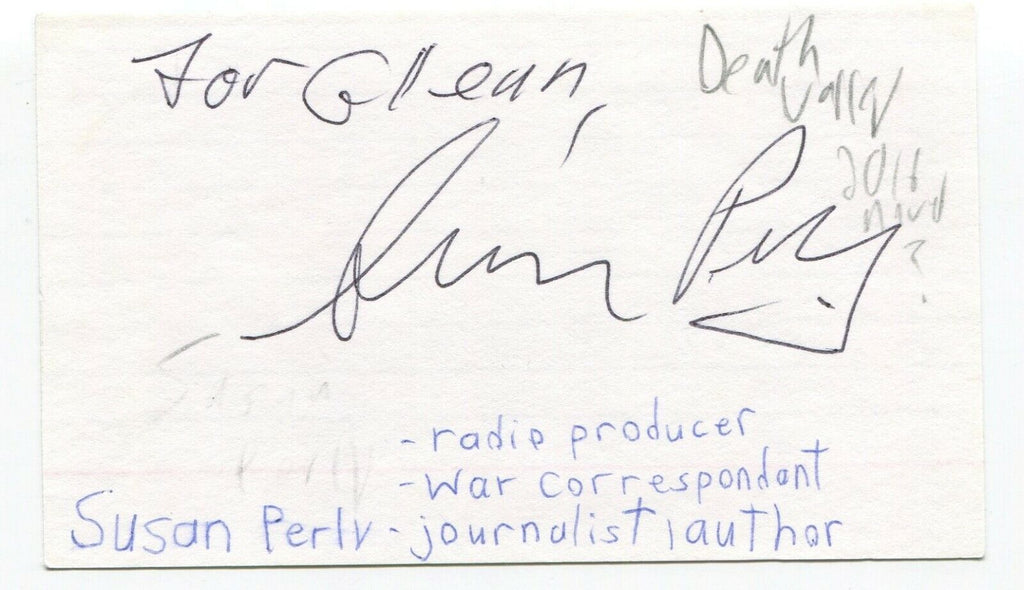 For Glenn,
Death
Valley
2016
novel
?
Susan Perly
Susan
Perly
- radio producer
- war correspondant
Susan Perly - journalist, author